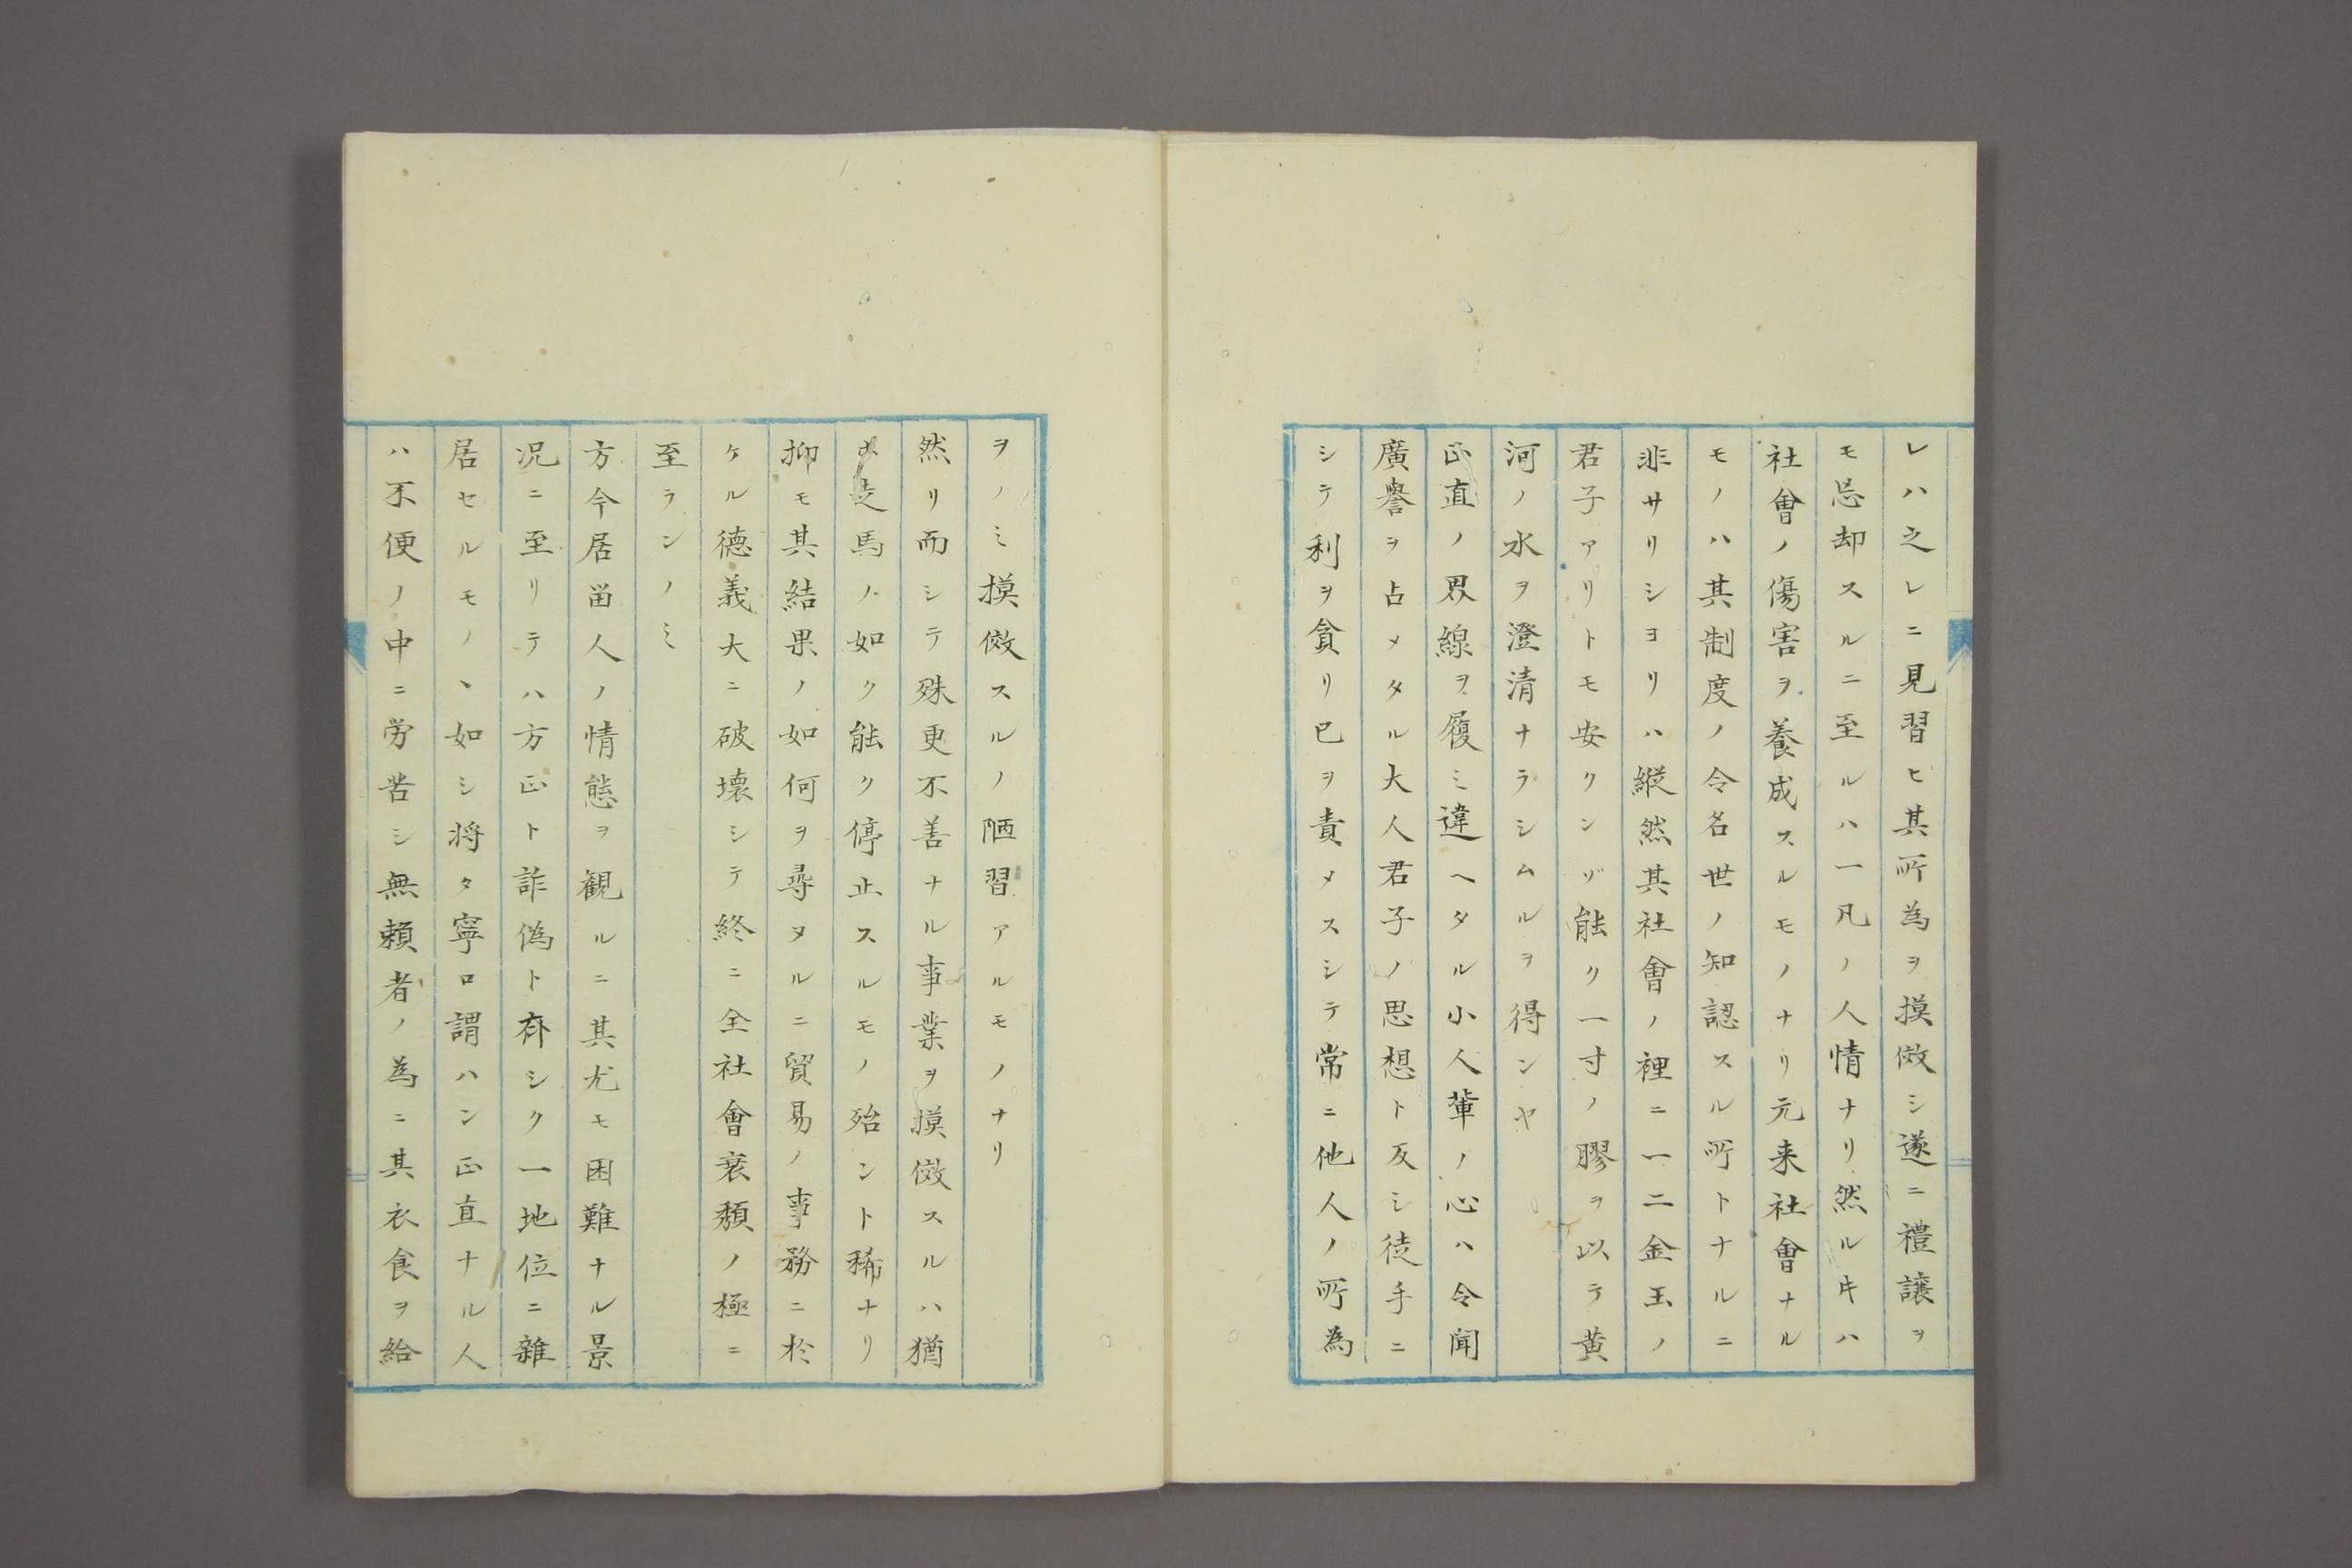 レハ之レニ見習ヒ其所為ヲ摸倣シ遂ニ禮譲ヲ
モ忘却スルニ至ルハ一凡ノ人情ナリ然ル㇔ハ
社會ノ傷害ヲ養成スルモノナリ元来社會ナル
モノハ其制度ノ令名世ノ知認スル所トナルニ
非サリシヨリハ縦然其社會ノ裡ニ一二金玉ノ
君子アリトモ安クンゾ能ク一寸ノ膠ヲ以テ黄
河ノ水ヲ澄清ナラシムルヲ得ンヤ
正直ノ界線ヲ履ミ違ヘタル小人輩ノ心ハ令聞
廣譽ヲ占メタル大人君子ノ思想ト反シ徒手ニ
シテ利ヲ貪リ已ヲ責メスシテ常ニ他人ノ所為
ヲノミ摸倣スルノ陋習アルモノナリ
然リ而シテ殊更不善ナル事業ヲ摸倣スルハ猶
走馬ノ如ク能ク停止スルモノ殆ント稀ナリ
抑モ其結果ノ如何ヲ尋ヌルニ貿易ノ事務ニ於
ケル徳義大ニ破壊シテ終ニ全社會衰頽ノ極ニ
至ランノミ
方今居畄人ノ情態ヲ観ルニ其尤モ困難ナル景
况ニ至リテハ方正ト詐偽ト齊シク一地位ニ雑
居セルモノヽ如シ将タ寧ロ謂ハン正直ナル人
ハ不便ノ中ニ労苦シ無頼者ノ為ニ其衣食ヲ給